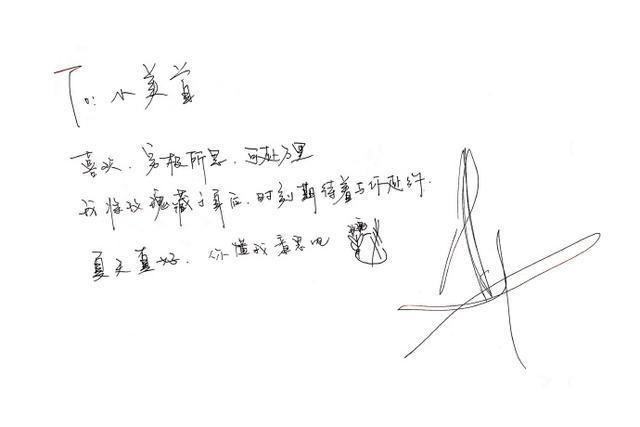 To: 小美首
喜欢、穷极所思、可赴万里
我将玫瑰藏于身后，时刻期待着与你赴约.
夏天真好、你懂我意思吧